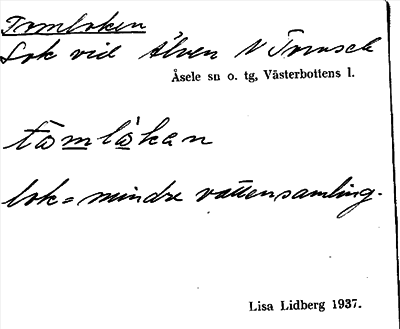 Tomloken
Lok vid Älven N Tomsele
Åsele sn o. tg, Västerbottens l.
tòmlòkan
lok = mindre vattensamling.
Lisa Lidberg 1937.